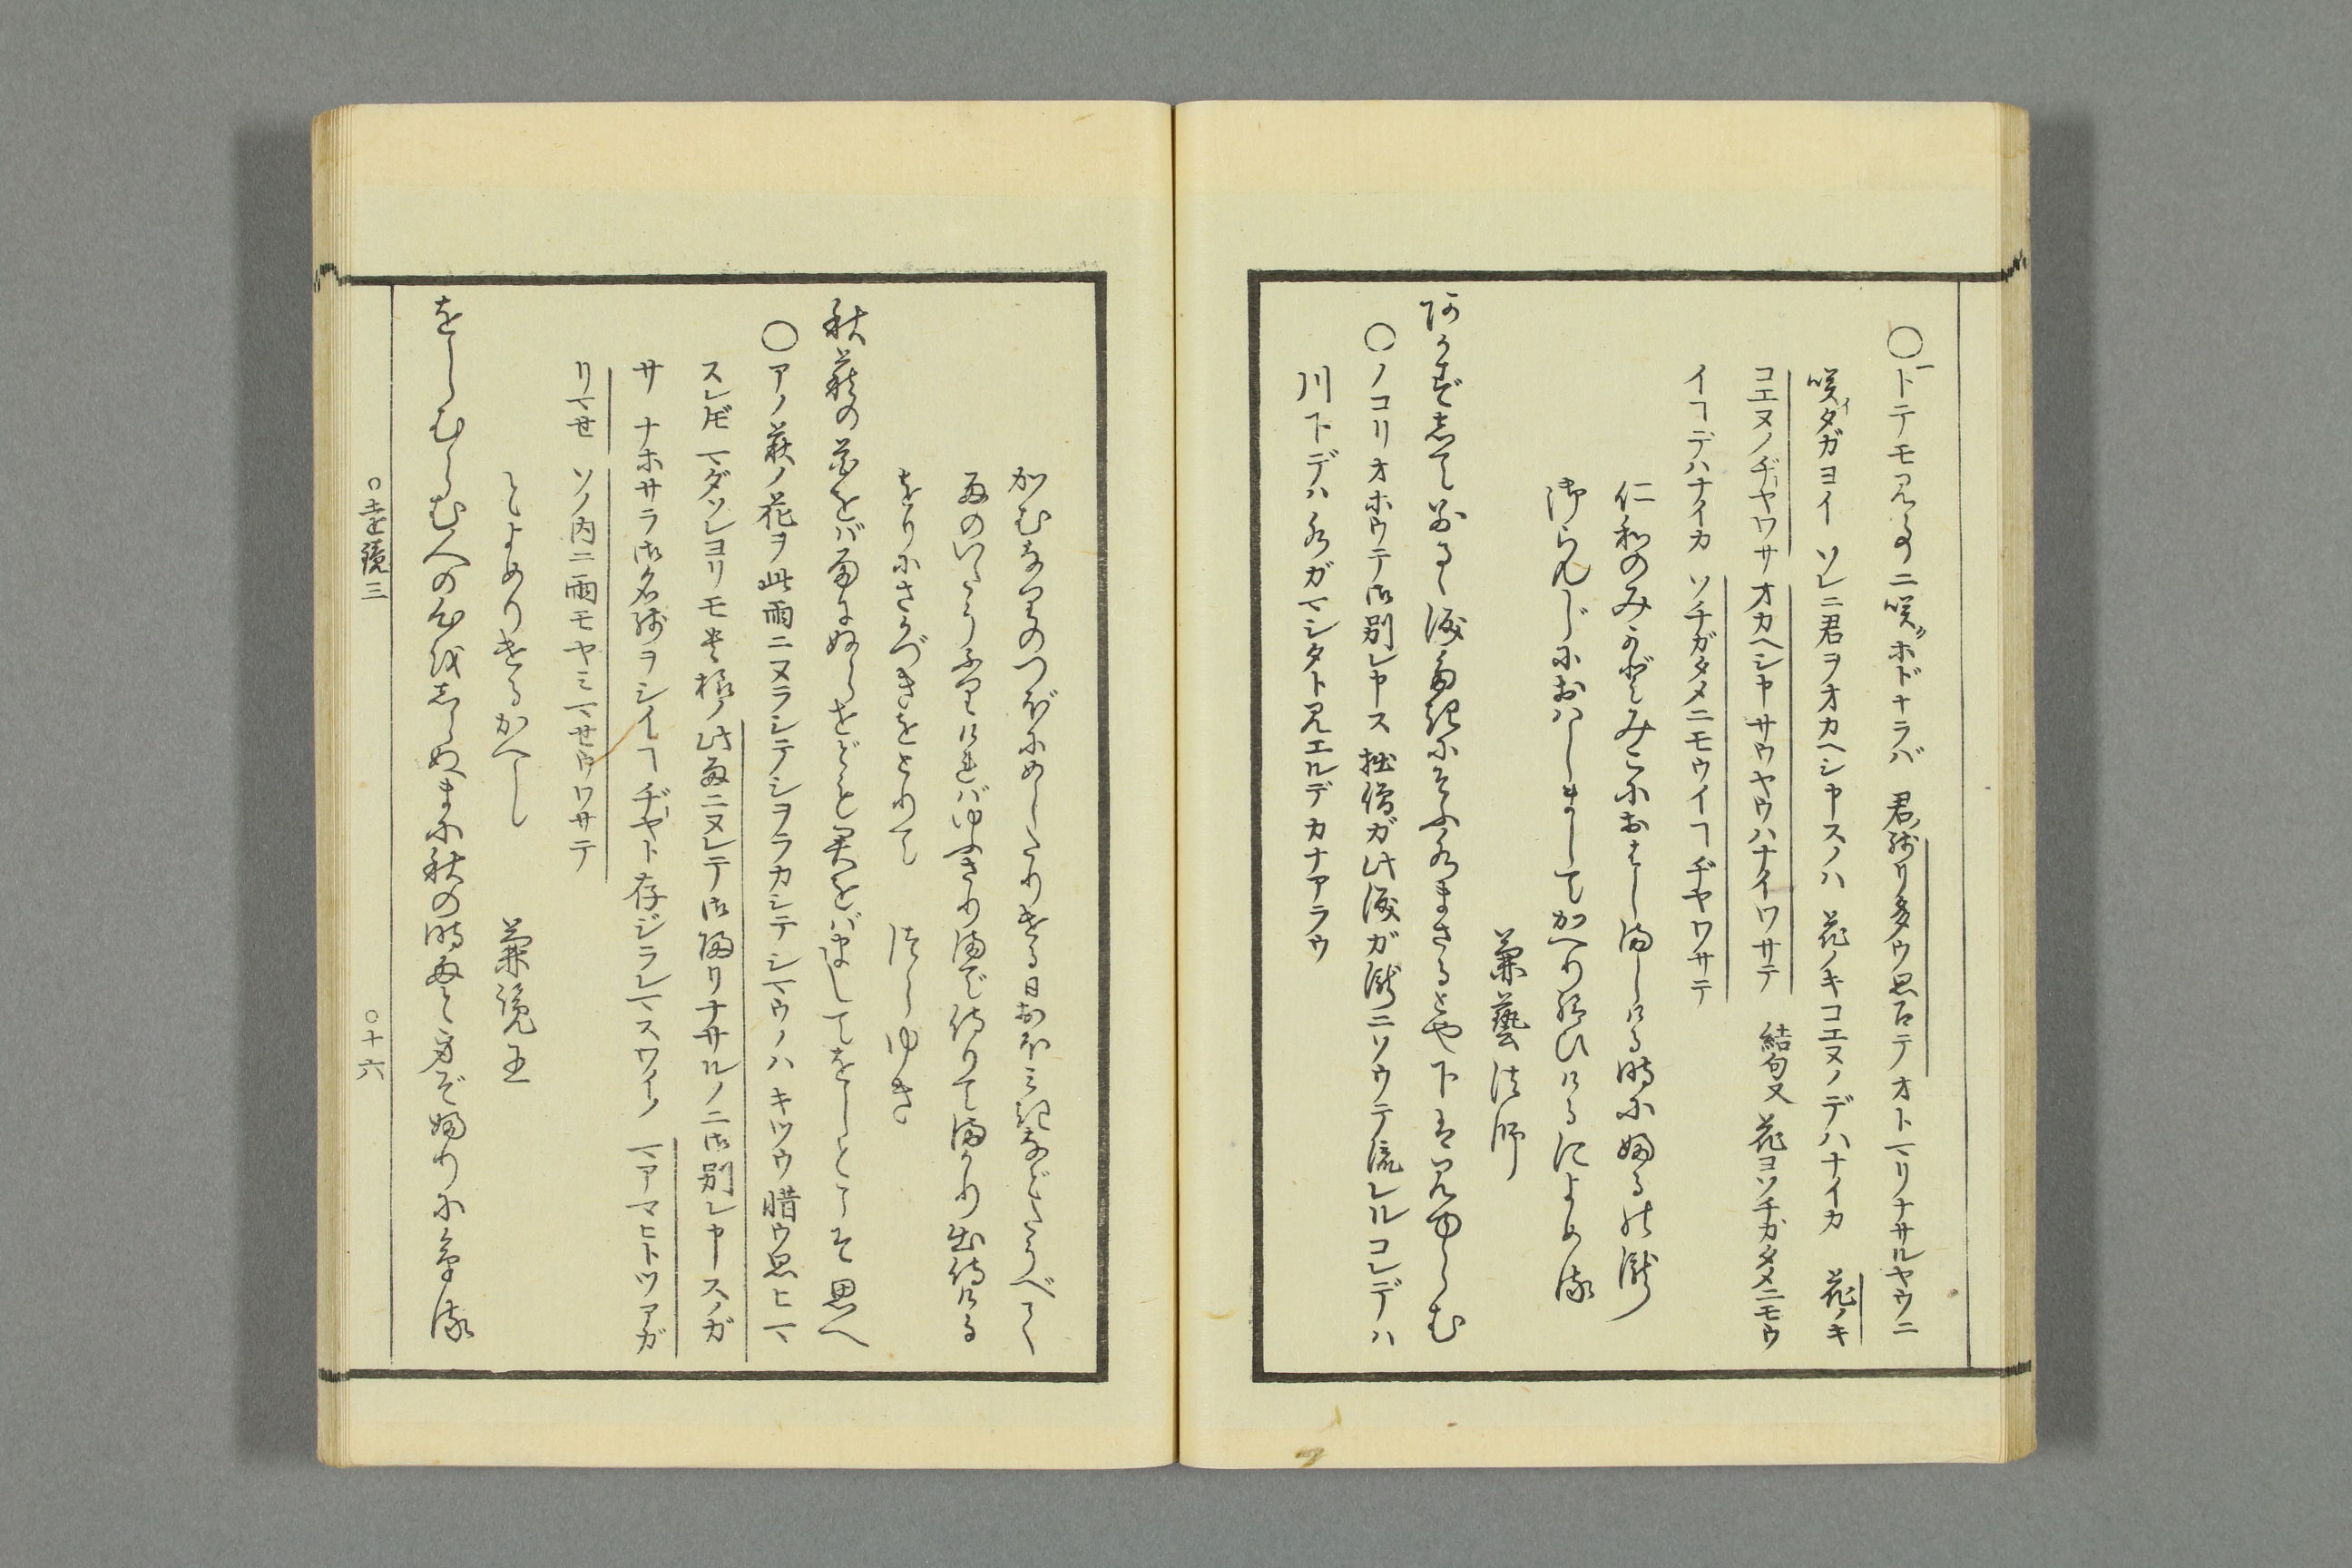 ○トテモ見事ニ咲クホドナラバ 君ノ残リ多ウ思召テオトマリナサルヤウニ
咲イタガヨイ ソレニ君ヲオカヘシヤスノハ 花ノキコエヌノデハナイカ 花ノキ
コエヌノヂヤワサ オカヘシヤサウヤウハナイワサテ 結句又 花ヨソチガタメニモウ
イヿデハナイカ ソチガタメニモウイヿヂヤワサテ
仁和のみかどみこにおはしましける時にふるの瀧
御らんじにおはしましてかへり給ひけるによめる
兼藝法師
あかずしてわかるゝ涙瀧にそふ水まさるとや下は見ゆらむ
○ノコリオホウテ御別レヤス 拙僧ガ此涙ガ瀧ニソウテ流レルコレデハ
川下デハ水ガマシタト見エルデカナアラウ
かむなりのつぼにめしたりける日おほみきなどたうべて
雨のいたうふりければゆふさりまで侍りてまかり出侍ける
をりにさかづきをとりて つらゆき
秋萩の花をば雨にぬらせども君をばましてをしとこそ思へ
○アノ萩ノ花ヲ此雨ニヌラシテシヲラカシテシマウノハ キツウ惜ウ思ヒマ
スレドモ マダソレヨリモ貴様ノ此雨ニヌレテ御帰リナサルノニ御別レヤースノガ
サ ナホサラ御名残ヲシイヿヂヤト存ジラレマスワイノ マアマヒトツアガ
リマセ ソノ内ニ雨モヤミマセウワサテ
とよめりけるかへし 兼覧王
をしむらむ人の心をしらぬまに秋の時雨と身ぞふりにける
○遠鏡三 ○十六